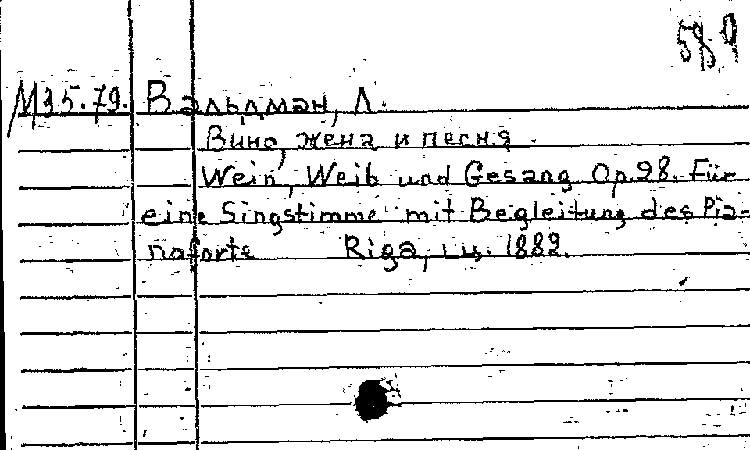 58.9
М35.79. Вальдман, Л.
Вино, жена и песня.
Wein, Weib und Gesang Op.98. Für
eine Singstimme mit Begleitung des Pia-
noforte Riga, ц. 1882.